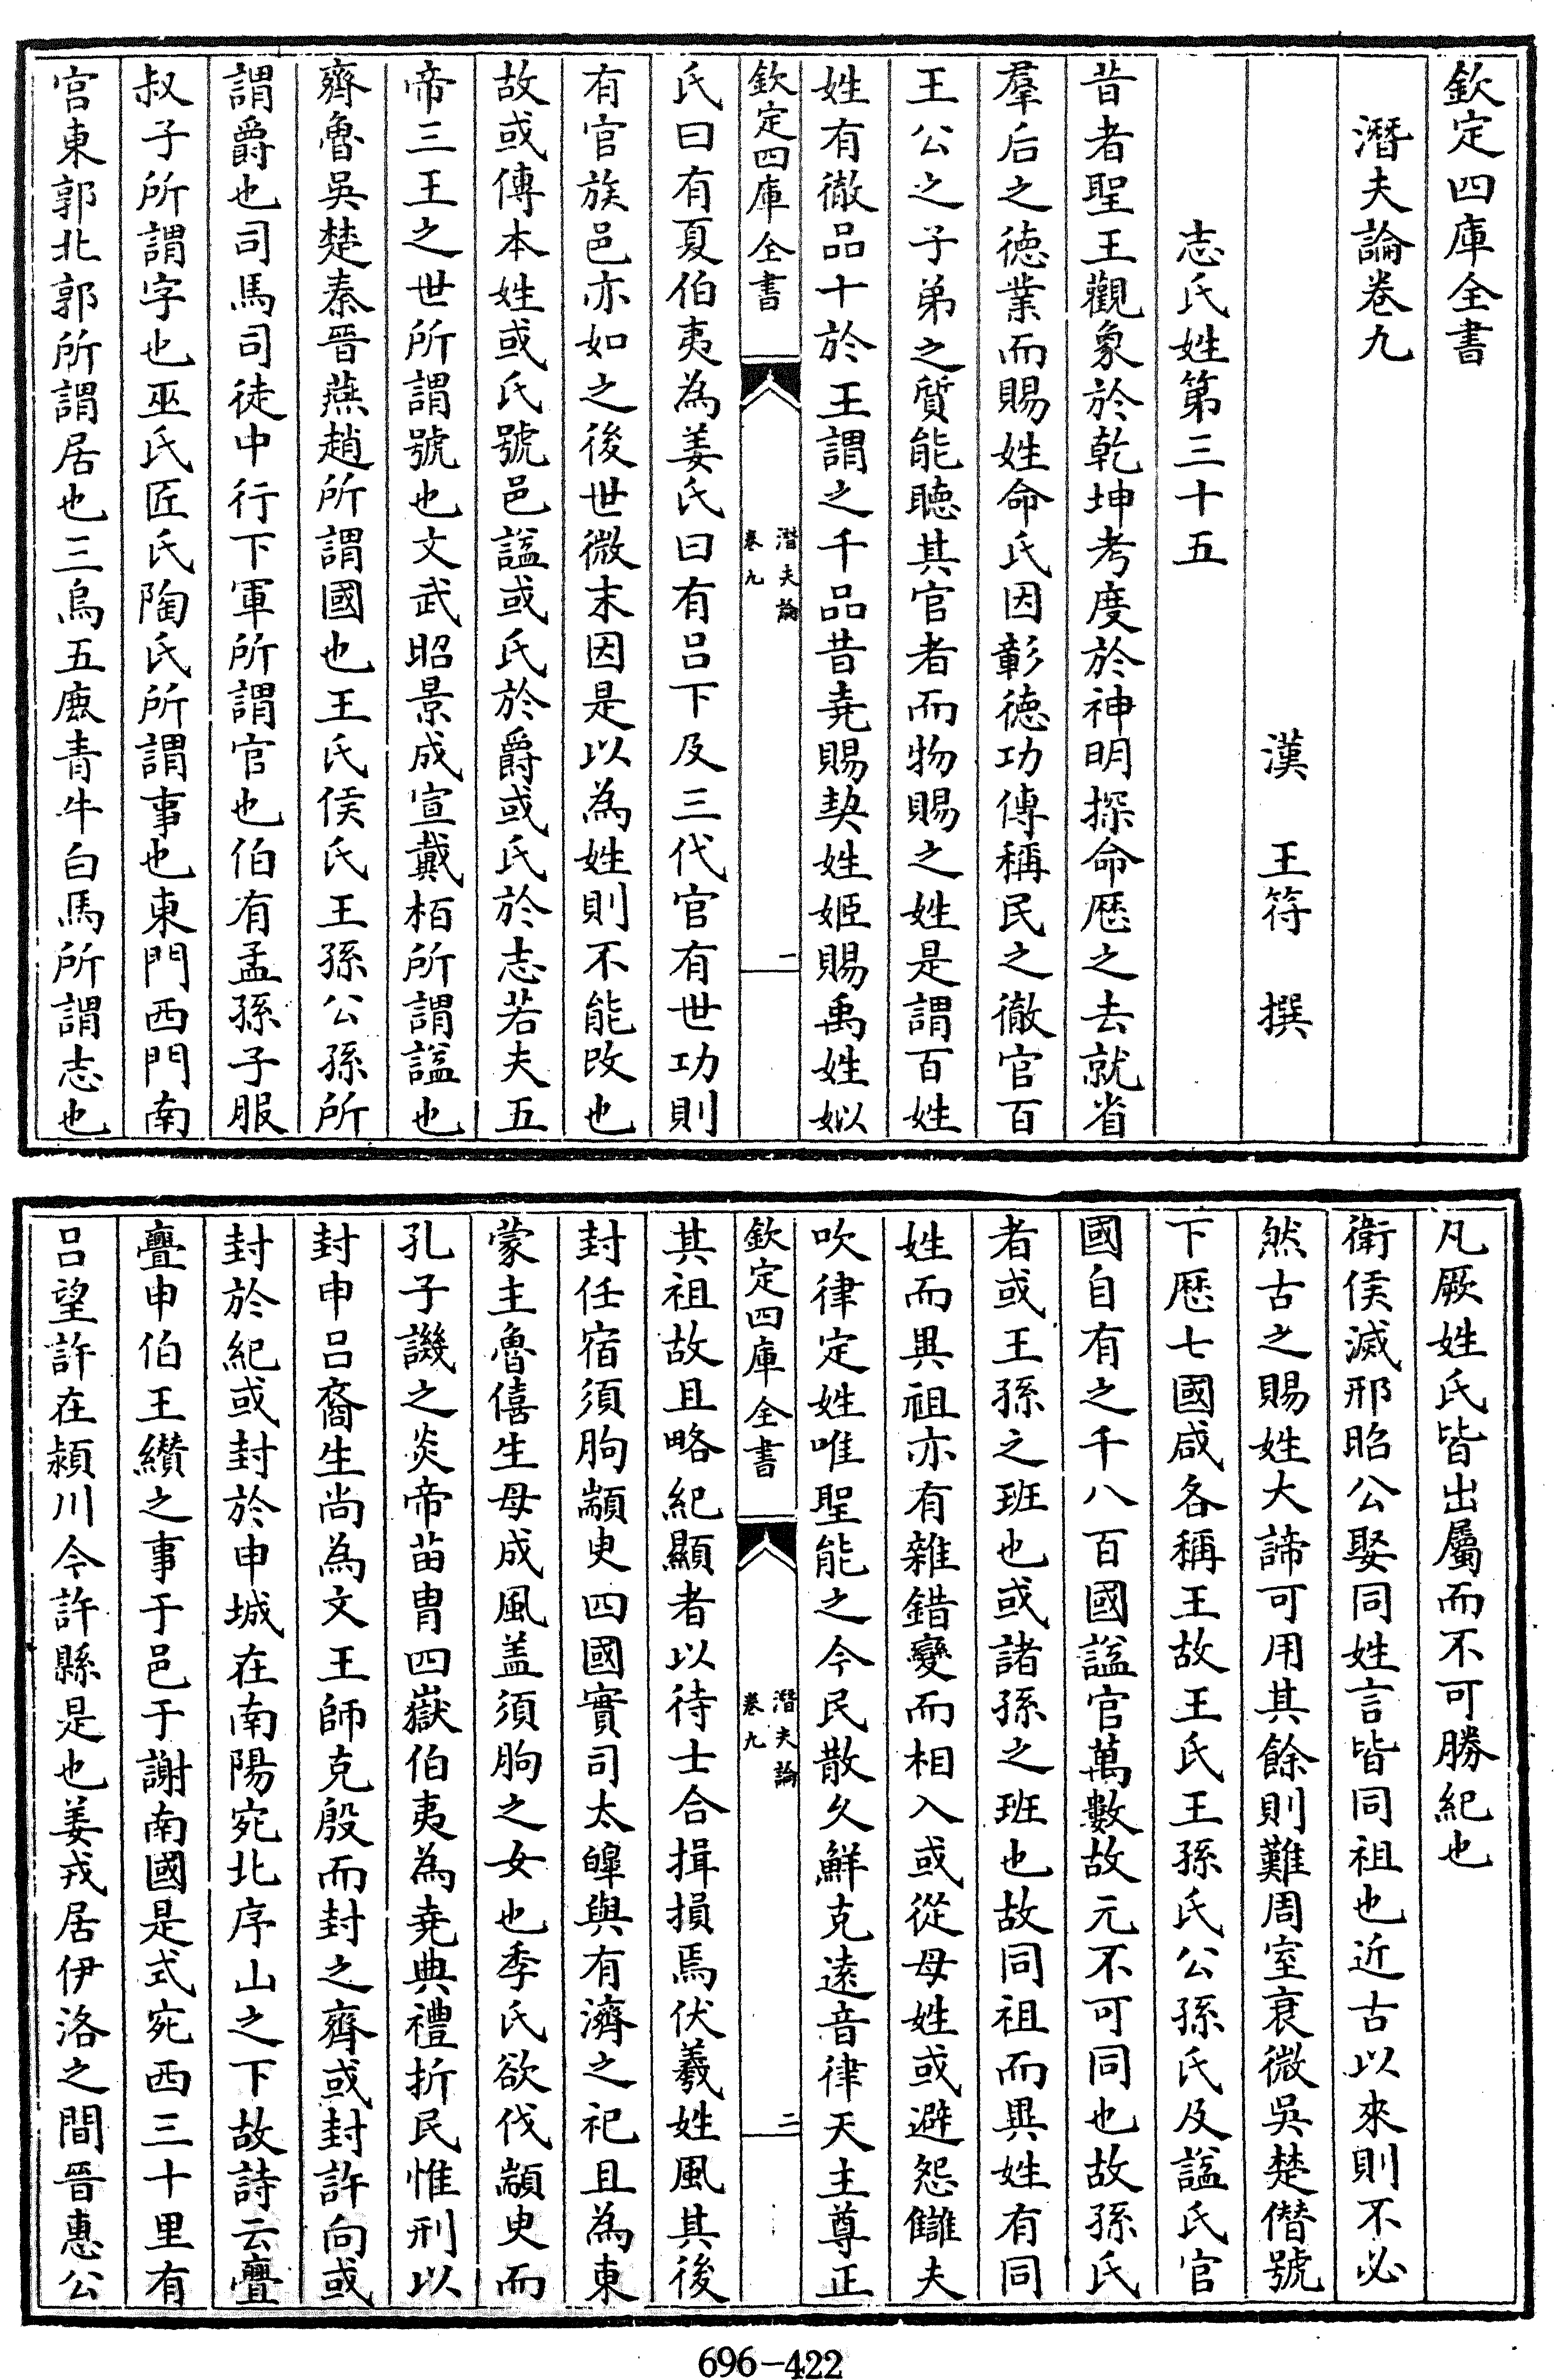 欽定四庫全書
潛夫論卷九
漢　王符　撰
志氏姓第三十五
昔者聖王觀象於乾坤考度於神明探命歷之去就省
羣后之德業而賜姓命氏因彰德功傳稱民之徹官百
王公之子弟之質能聽其官者而物賜之姓是謂百姓
姓有徹品十於王謂之千品昔堯賜契姓姬賜禹姓姒
欽定四庫全書
潛夫論
卷九
一
氏曰有夏伯夷為姜氏曰有呂下及三代官有世功則
有官族邑亦如之後世微末因是以為姓則不能改也
故或傳本姓或氏號邑諡或氏於爵或氏於志若夫五
帝三王之世所謂號也文武昭景成宣戴栢所謂諡也
齊魯吳楚秦晉燕趙所謂國也王氏侯氏王孫公孫所
謂爵也司馬司徒中行下軍所謂官也伯有孟孫子服
叔子所謂字也巫氏匠氏陶氏所謂事也東門西門南
宮東郭北郭所謂居也三烏五鹿青牛白馬所謂志也
凡厥姓氏皆出屬而不可勝紀也
衛侯滅邢昭公娶同姓言皆同祖也近古以來則不必
然古之賜姓大諦可用其餘則難周室衰微吳楚僭號
下歷七國咸各稱王故王氏王孫氏公孫氏及諡氏官
國自有之千八百國諡官萬數故元不可同也故孫氏
者或王孫之班也或諸孫之班也故同祖而異姓有同
姓而異祖亦有雜錯變而相入或從母姓或避怨讎夫
吹律定姓唯聖能之今民散久鮮克遠音律天主尊正
欽定四庫全書
潛夫論
卷九
二
其祖故且略紀顯者以待士合揖損焉伏羲姓風其後
封任宿須朐顓臾四國實司太皞與有濟之祀且為東
蒙主魯僖生母成風盖須朐之女也季氏欲伐顓臾而
孔子譏之炎帝苗胄四嶽伯夷為堯典禮折民惟刑以
封申呂裔生尚為文王師克殷而封之齊或封許向或
封於紀或封於申城在南陽宛北序山之下故詩云亹
亹申伯王纘之事于邑于謝南國是式宛西三十里有
呂望許在潁川今許縣是也姜戎居伊洛之間晉惠公
696-422